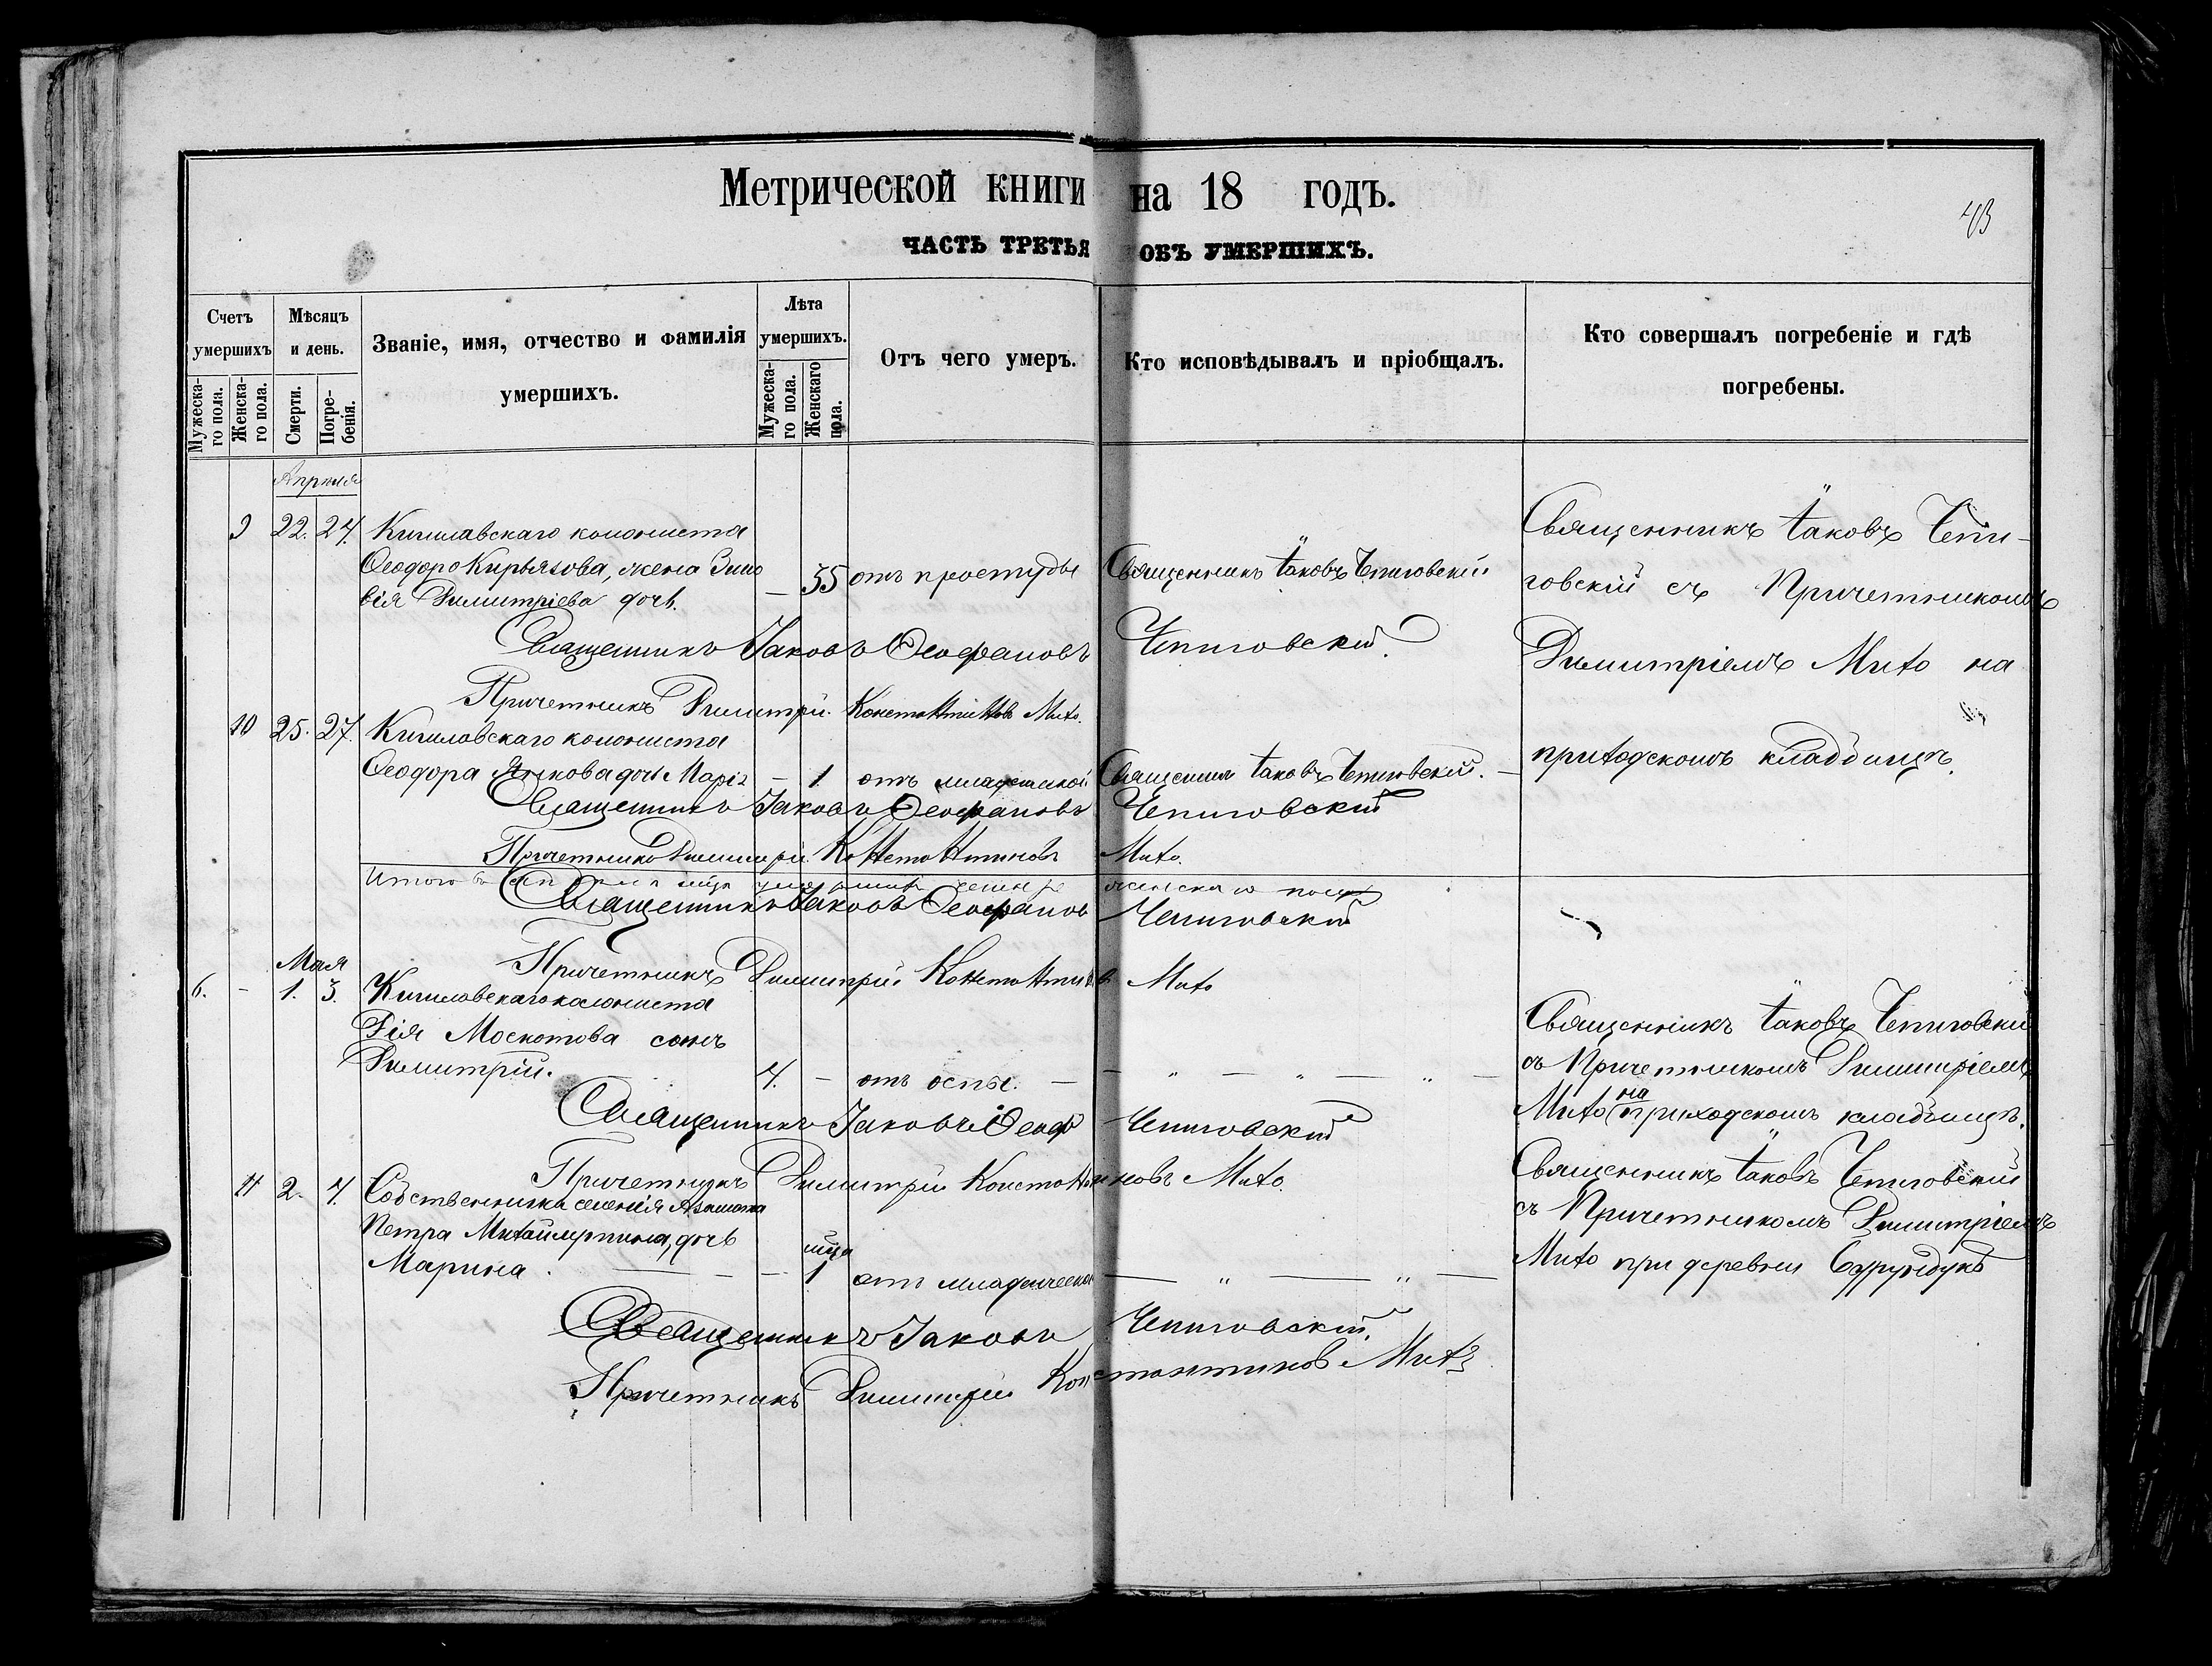 Метрической книги на 18 годъ.
43
ЧАСТЬ ТРЕТЬЯ ОБЪ УМЕРШИХЪ.
Счетъ умершихъ
Мужеска-го пола.
Женска-го пола.
Мѣсяцъ и день.
Смерти.
Погре-бенія.
Званіе, имя, отчество и фамилія умершихъ.
Лѣта умершихъ.
Мужеска-го пола.
Женскаго пола.
Отъ чего умеръ.
Кто исповѣдывалъ и пріобщалъ.
Кто совершалъ погребеніе и гдѣ погребены.
Апрѣля
9 22. 24. колониста
Ѳеодора жена
Димитріева дочь. — 35 отъ простуды
Священникъ Іаковъ Чепиговскій
Священникъ Іаковъ Чепи-
говскій съ Причетникомъ
Димитріемъ Михо на
приходскомъ кладбищѣ.
Священникъ Іаковъ Ѳеофановъ Чепиговскій.
Причетникъ Димитрій Константиновъ Михо.
10 25. 27. колониста
Ѳеодора Янкова дочь Марія — 1 отъ младенческой Священникъ Іаковъ Чепиговскій. —
Священникъ Іаковъ Ѳеофановъ Чепиговскій
Причетникъ Димитрій Константиновъ Михо.
Итого умершихъ женскаго пола
Священникъ Іаковъ Ѳеофановъ Чепиговскій
Причетникъ Димитрій Константиновъ Михо
Мая
6. - 1. 3. колониста
сынъ
Димитрій. 4. — отъ оспы. — — „ — „ — „ —
Священникъ Іаковъ Чепиговскій
съ Причетникомъ Димитріемъ
Михо на приходскомъ кладбищѣ.
Священникъ Іаковъ Ѳеоф Чепиговскій
Причетникъ Димитрій Константиновъ Михо.
11 2. 4. Собственника селенія
Петра дочь
Марина. — мѣсяца 1 отъ младенческой — „ — „ —
Священникъ Іаковъ Чепиговскій
съ Причетникомъ Димитріемъ
Михо при деревни
Священникъ Іаковъ Чепиговскій.
Причетникъ Димитрій Константиновъ Михо